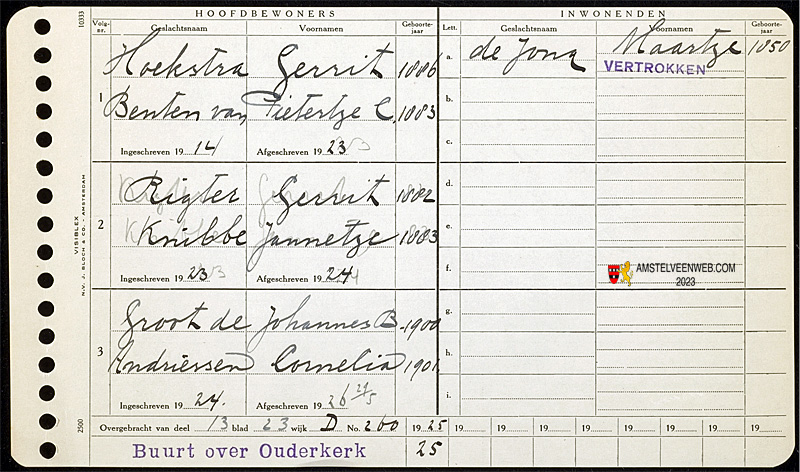 HOOFDBEWONERS INWONENDEN
Volg-nr. Geslachtsnaam Voornamen Geboorte-jaar Lett. Geslachtsnaam Voornamen Geboorte-jaar
1 Hoekstra Gerrit 1886 a. de Jong Maartje 1850
VERTROKKEN
Benten van Pietertje C. 1883 b.
c.
Ingeschreven 19 14 Afgeschreven 19 23
2 Rigter Gerrit 1882 d.
Knibbe Jannetje 1883 e.
f.
Ingeschreven 19 23 Afgeschreven 19 24
AMSTELVEENWEB.COM
2023
3 Groot de Johannes B. 1900 g.
Andriessen Cornelia 1901 h.
i.
Ingeschreven 19 24. Afgeschreven 19 26 24/5
Overgebracht van deel 13 blad 23 wijk D No. 260 19 25 19 19 19 19 19 19 19 19
Buurt over Ouderkerk 25
10333
VISIBLEX
N.V. J. BLOCH & CO. AMSTERDAM
2500